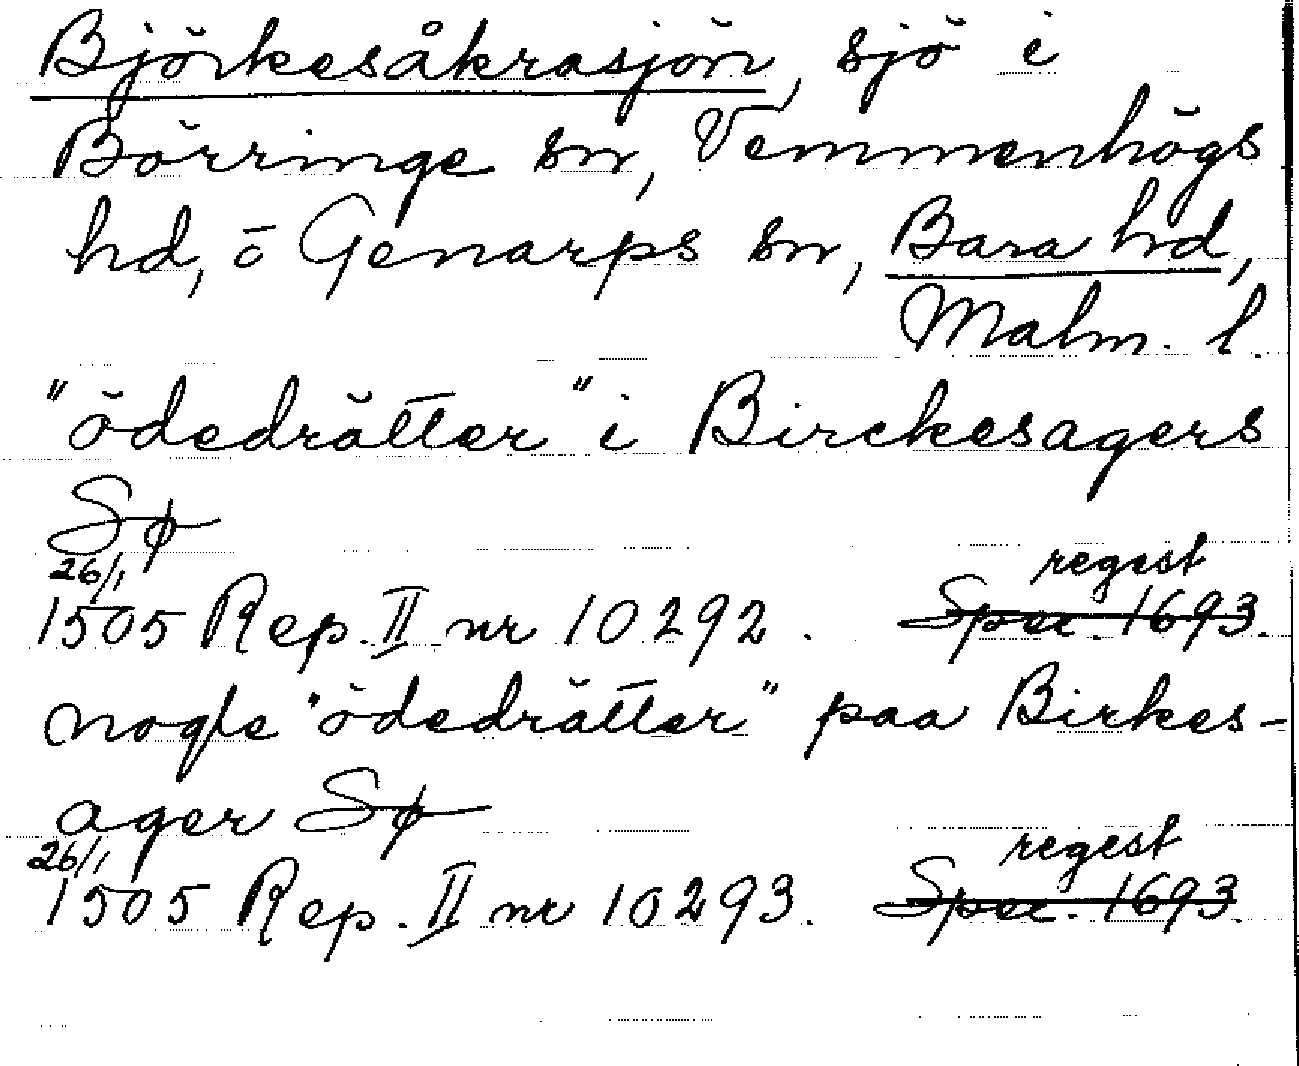 Björkesåkrasjön, sjö i
Börringe sn, Vemmenhögs
hd, o Genarps sn, Bara hd,
Malm. l.
"ödedrätter" i Birckesagers
Sø
26/1 regest
1505 Rep. II nr 10292. Spec. 1693.
nogle "ödedrätter" paa Birkes-
ager Sø
26/1 regest
1505 Rep. II nr 10293. Spec. 1693.